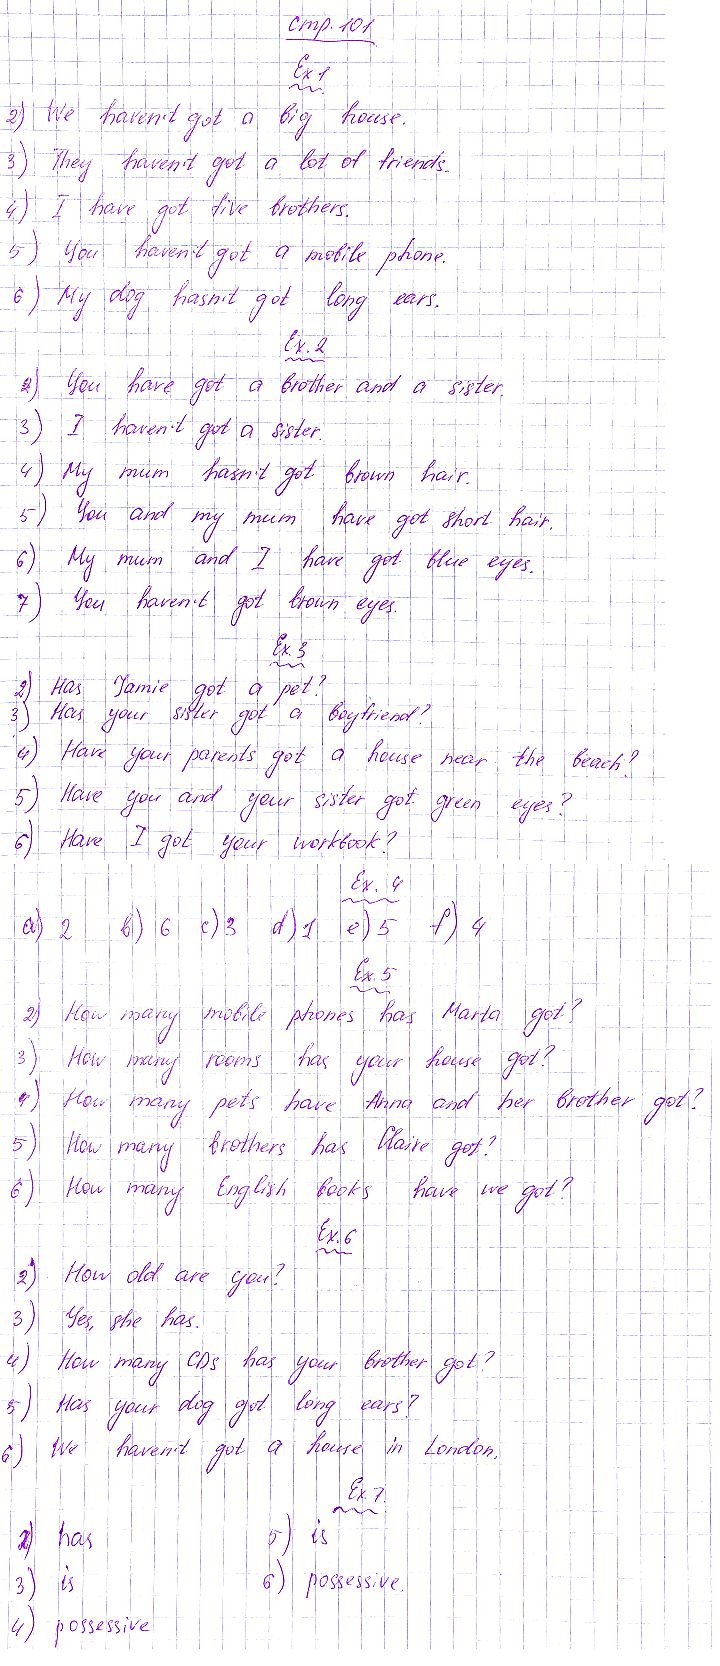 стр. 101
Ex 1
2) We haven't got a big house.
3) They haven't got a lot of friends.
4) I have got five brothers.
5) You haven't got a mobile phone.
6) My dog hasn't got long ears.
Ex. 2
2) You have got a brother and a sister.
3) I haven't got a sister.
4) My mum hasn't got brown hair.
5) You and my mum have got short hair.
6) My mum and I have got blue eyes.
7) You haven't got brown eyes.
Ex. 3
2) Has Jamie got a pet?
3) Has your sister got a boyfriend?
4) Have your parents got a house near the beach?
5) Have you and your sister got green eyes?
6) Have I got your workbook?
Ex. 4
a) 2 b) 6 c) 3 d) 1 e) 5 f) 4
Ex. 5
2) How many mobile phones has Marta got?
3) How many rooms has your house got?
4) How many pets have Anna and her brother got?
5) How many brothers has Claire got?
6) How many English books have we got?
Ex. 6
2) How old are you?
3) Yes, she has.
4) How many CDs has your brother got?
5) Has your dog got long ears?
6) We haven't got a house in London.
Ex. 7
2) has 5) is
3) is 6) possessive.
4) possessive